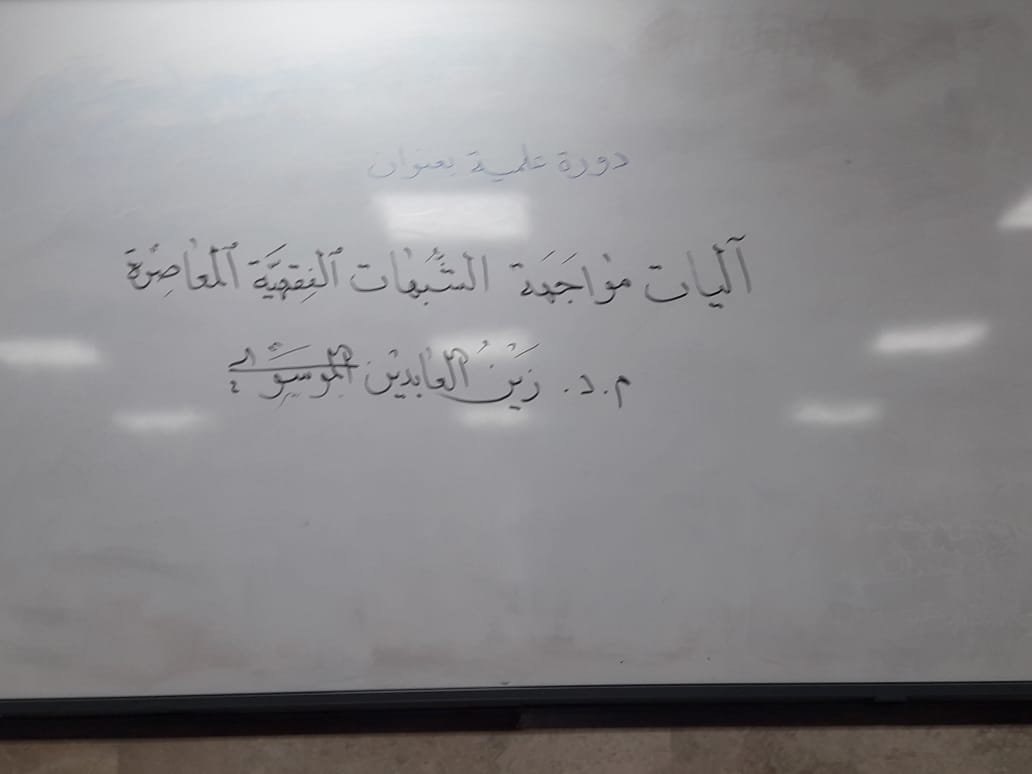 دورة علمية بعنوان
آليات مواجهة الشُّبهات الفِقهيَّة المعاصِرة
م.د. زَيْنُ العابدين الموسَوي